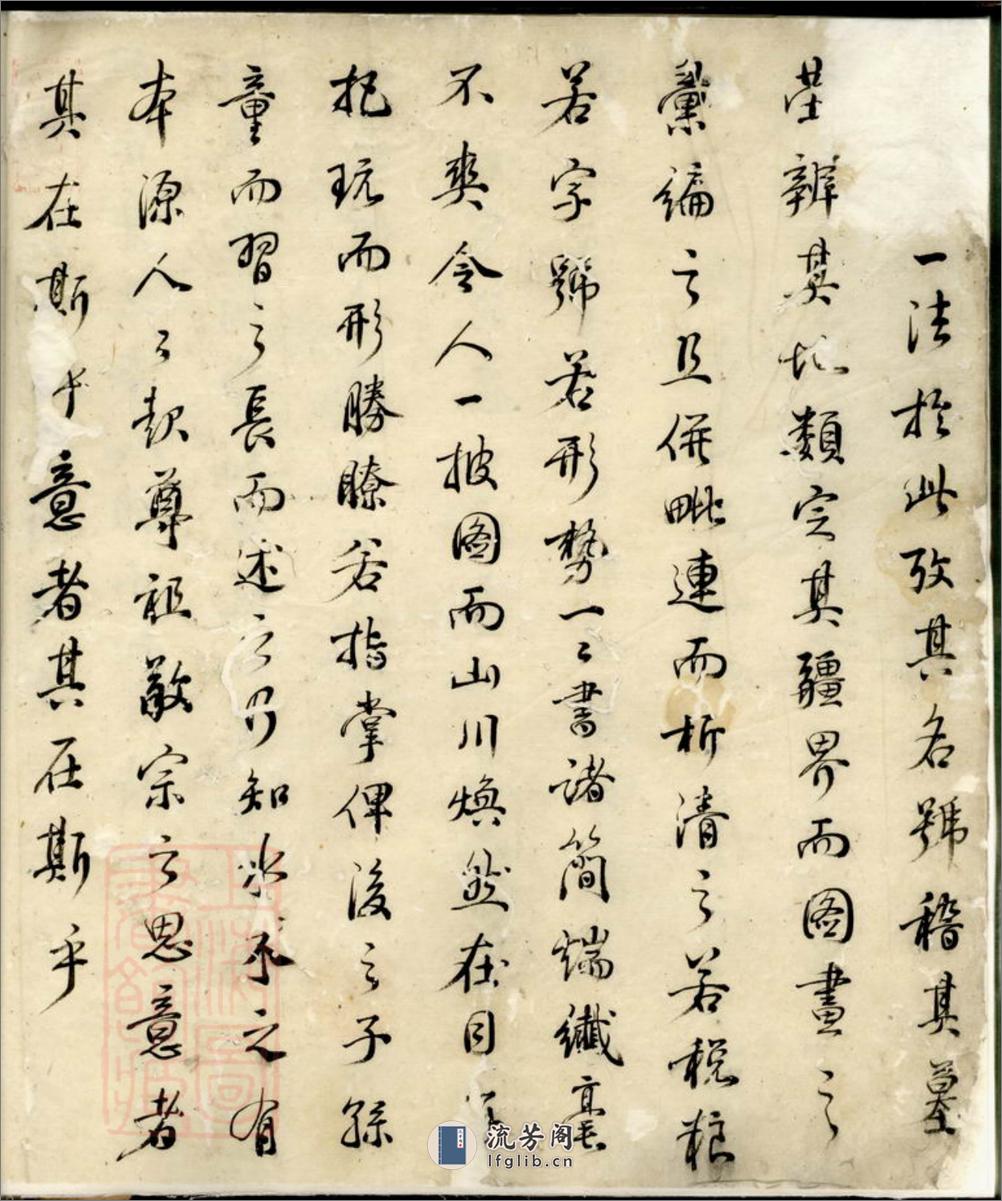 一法於此攷其名號稽其墓
塋辨其圯類定其疆界而圖畫之
彙編之且併毗連而析清之若稅粮
若字號若形勢一〻書諸簡端纖毫
不爽令人一披圖而山川煥然在目
把玩而形勝瞭若指掌俾後之子孫
童而習之長而述之乃知水木之有
本源人〻起尊祖敬宗之思意者
其在斯乎意者其在斯乎
上海圖書館藏
流芳阁
lfglib.cn